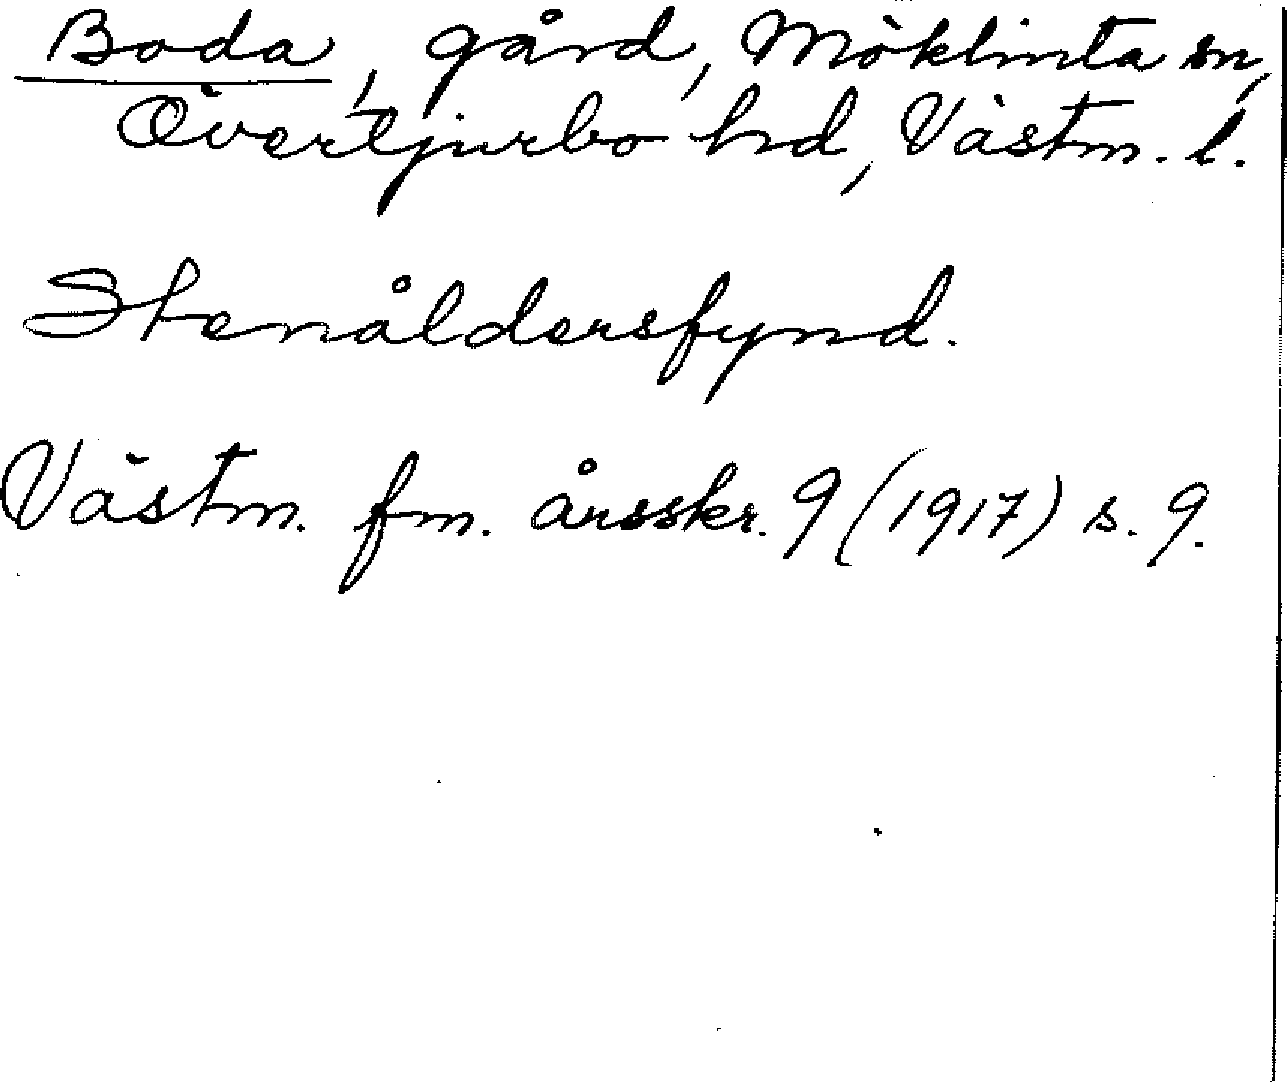 Boda, gård, Möklinta sn,
Övertjurbo hd, Västm. l.
Stenåldersfynd.
Västm. fm. årsskr. 9 (1917) s. 9.